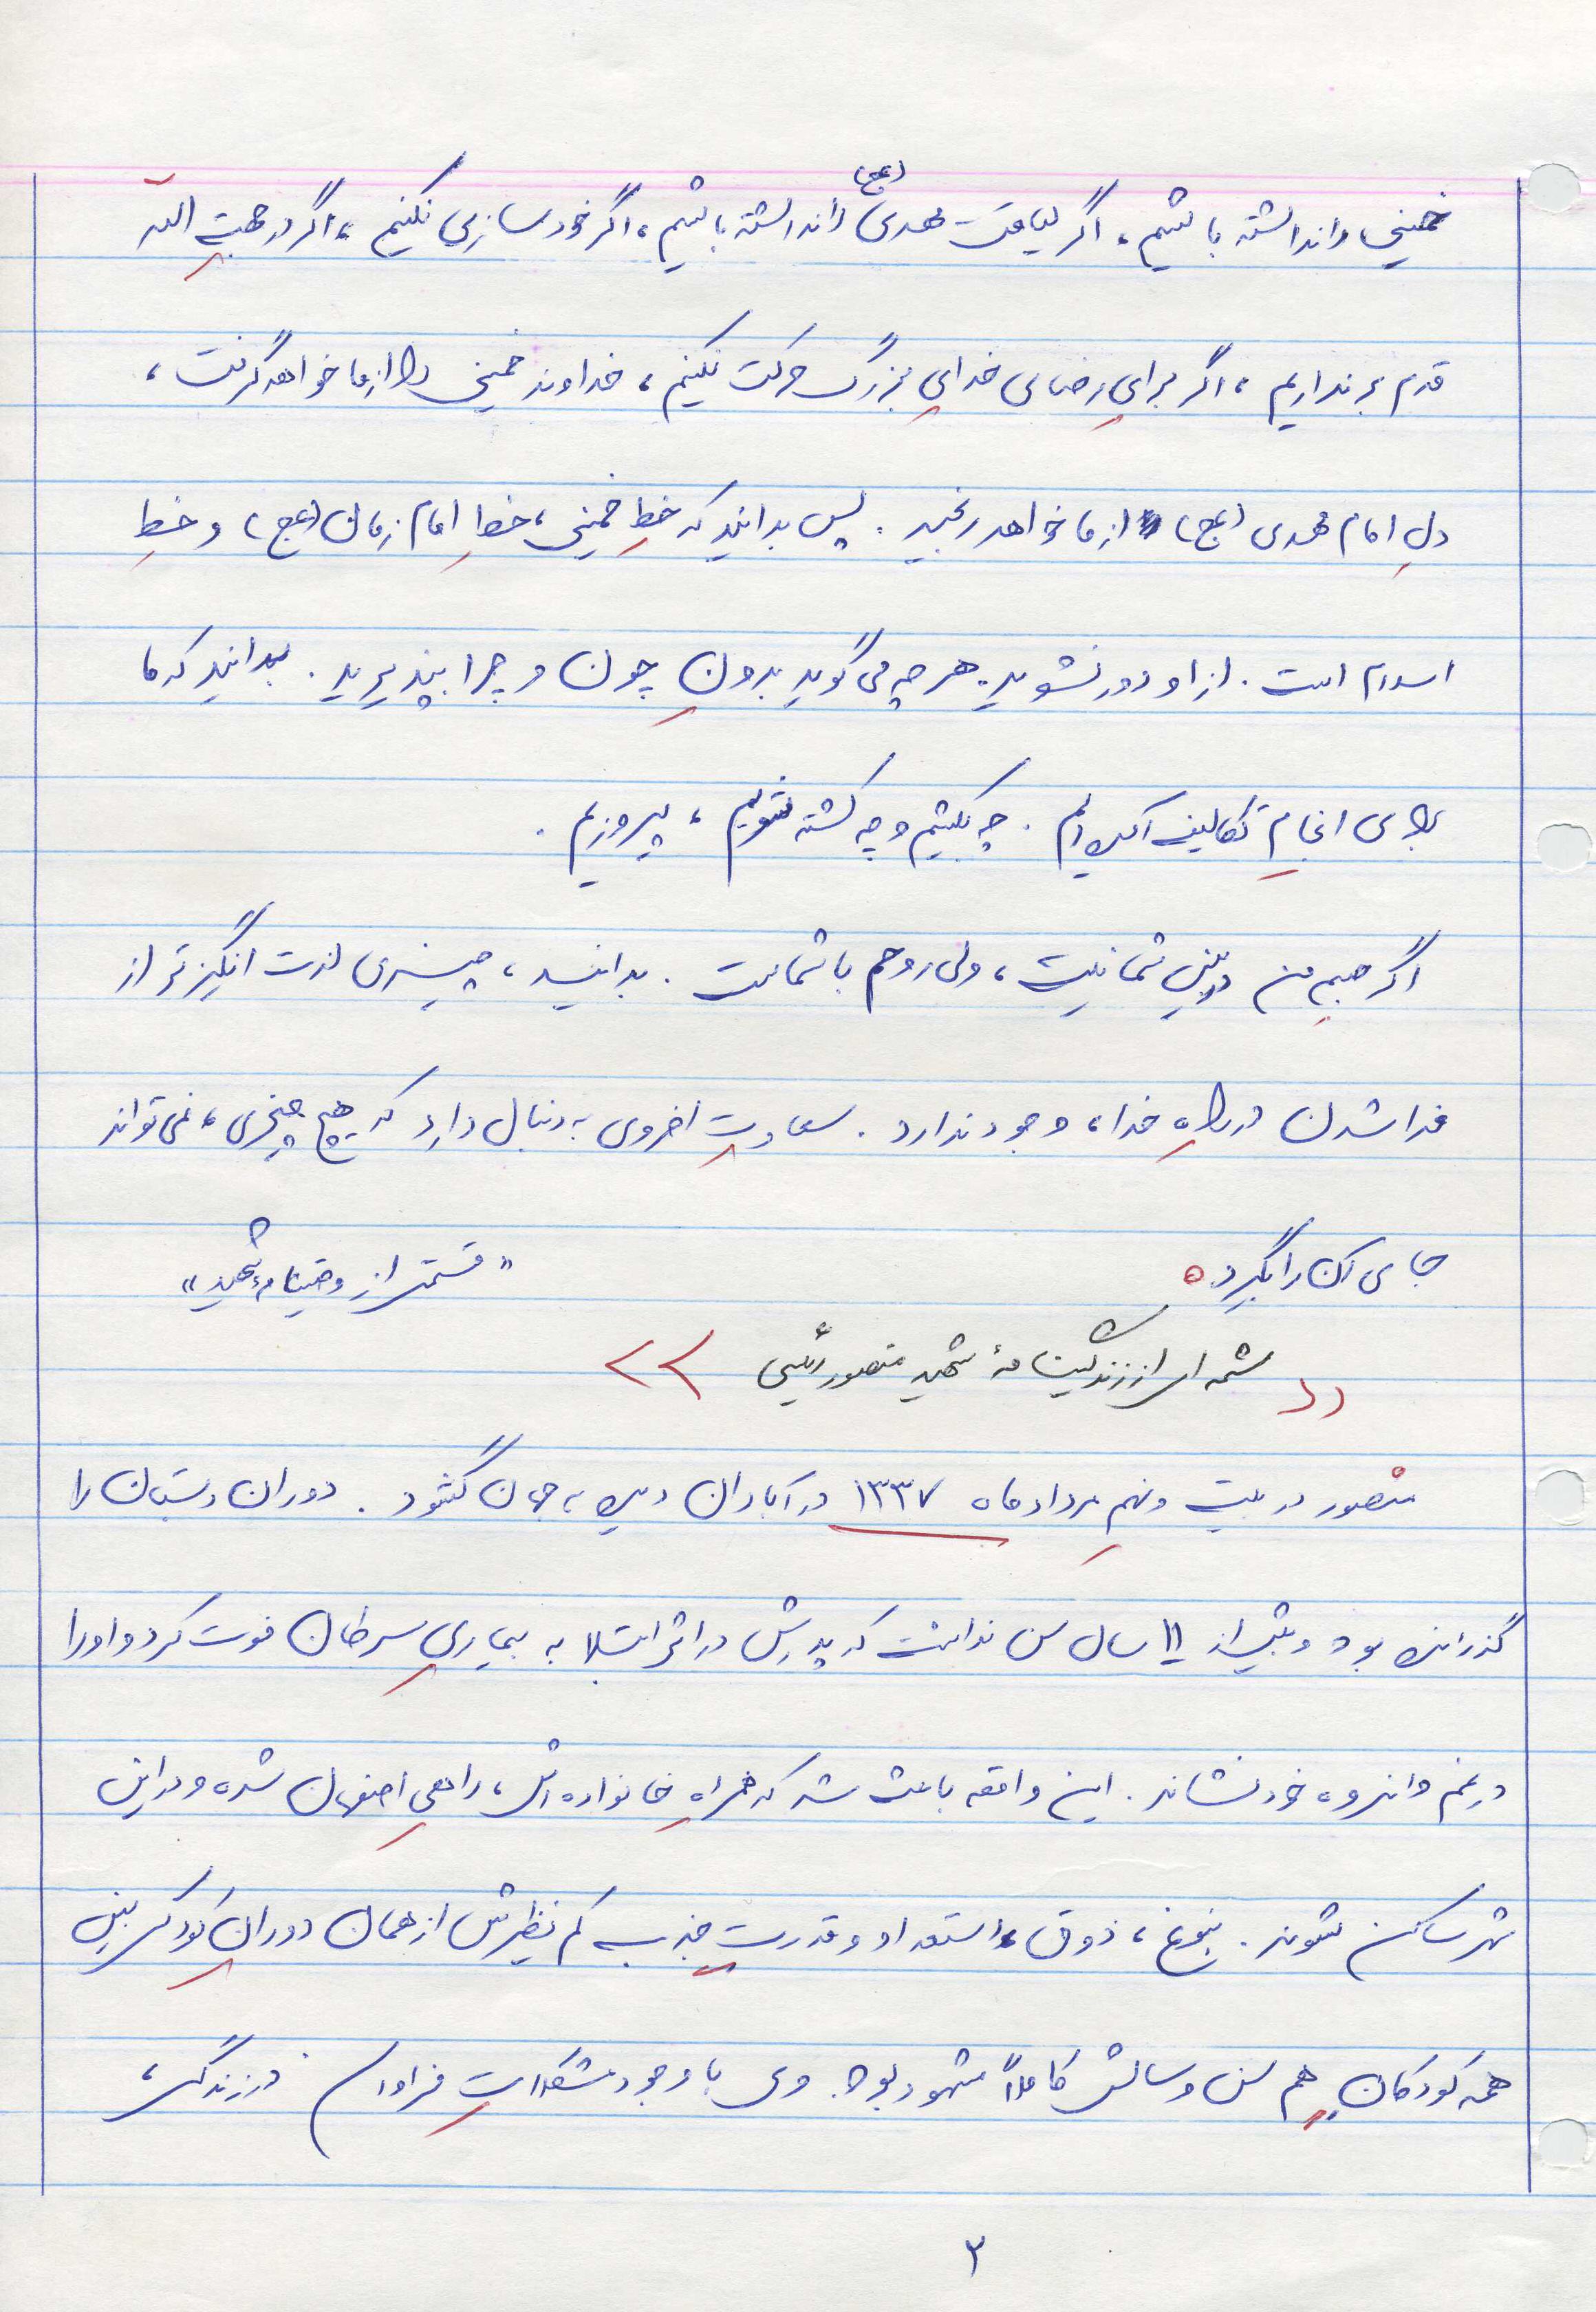 خمینی را نداشته باشیم، اگر لیاقت مهدی (عج) را نداشته باشیم، اگر خودسازی نکنیم، اگر در جهتِ اللّه
قدم برنداریم، اگر برایِ رضای خدایِ بزرگ حرکت نکنیم، خداوند خمینی را از ما خواهد گرفت،
دلِ امام مهدی (عج) از ما خواهد رنجید. پس بدانید که خطِ خمینی، خطِ امام زمان (عج) و خطِ
اسلام است. از او دور نشوید. هر چه می گوید بدونِ چون و چرا بپذیرید. بدانید که ما
برای انجامِ تکالیف آمده ایم. چه بکشیم و چه کشته شویم، پیروزیم.
اگر جسمِ من در بینِ شما نیست، ولی روحم با شماست. بدانید، چیزی لذت انگیزتر از
فدا شدن در راهِ خدا، وجود ندارد. سعادتِ اخروی به دنبال دارد که هیچ چیزی، نمی تواند
جای آن را بگیرد.
«قسمتی از وصیتنامۀ شهید»
«شمه ای از زندگینامۀ شهید منصور رئیسی»
منصور در بیست و نهمِ مرداد ماه ۱۳۳۷ در آبادان دیده به جهان گشود. دوران دبستان را
گذرانده بود و بیش از ۱۱ سال سن نداشت که پدرش در اثر ابتلا به بیماریِ سرطان فوت کرد و او را
در غم و اندوه خود نشاند. این واقعه باعث شد که همراهِ خانواده اش، راهیِ اصفهان شده و در این
شهر ساکن شوند. نبوغ، ذوق، استعداد و قدرتِ جذبه کم نظیرش از همان دورانِ کودکی بین
همه کودکانِ هم سن و سالش کاملاً مشهود بود. وی با وجود مشکلاتِ فراوان در زندگی،
۲